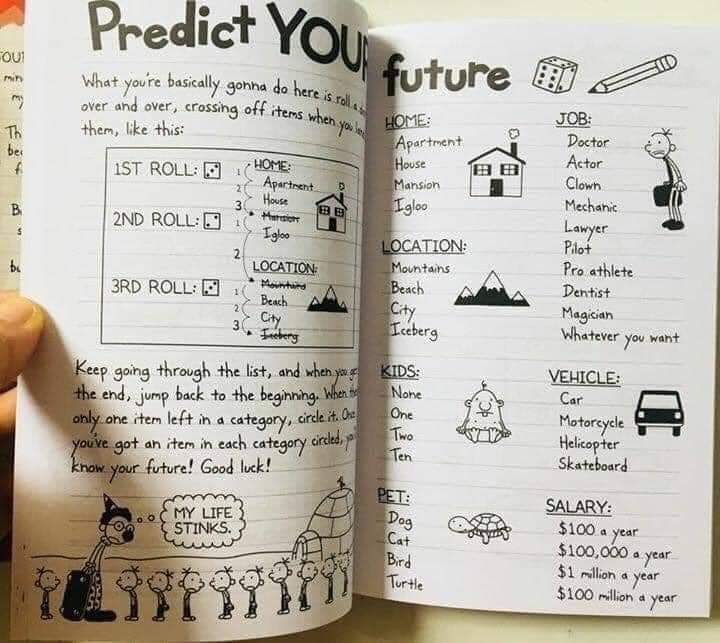 Predict YOUR
What you're basically gonna do here is roll a
over and over, crossing off items when you
them, like this:
1ST ROLL:
1
2
3
HOME:
Apartment
House
Mansion
Igloo
2ND ROLL:
1
2
LOCATION:
Mountains
Beach
City
Iceberg
3RD ROLL:
1
2
3
Keep going through the list, and when you
the end, jump back to the beginning. When
only one item left in a category, circle it.
you've got an item in each category circled,
know your future! Good luck!
MY LIFE
STINKS.
future
HOME:
Apartment
House
Mansion
Igloo
LOCATION:
Mountains
Beach
City
Iceberg
KIDS:
None
One
Two
Ten
PET:
Dog
Cat
Bird
Turtle
JOB:
Doctor
Actor
Clown
Mechanic
Lawyer
Pilot
Pro athlete
Dentist
Magician
Whatever you want
VEHICLE:
Car
Motorcycle
Helicopter
Skateboard
SALARY:
$100 a year
$100,000 a year
$1 million a year
$100 million a year